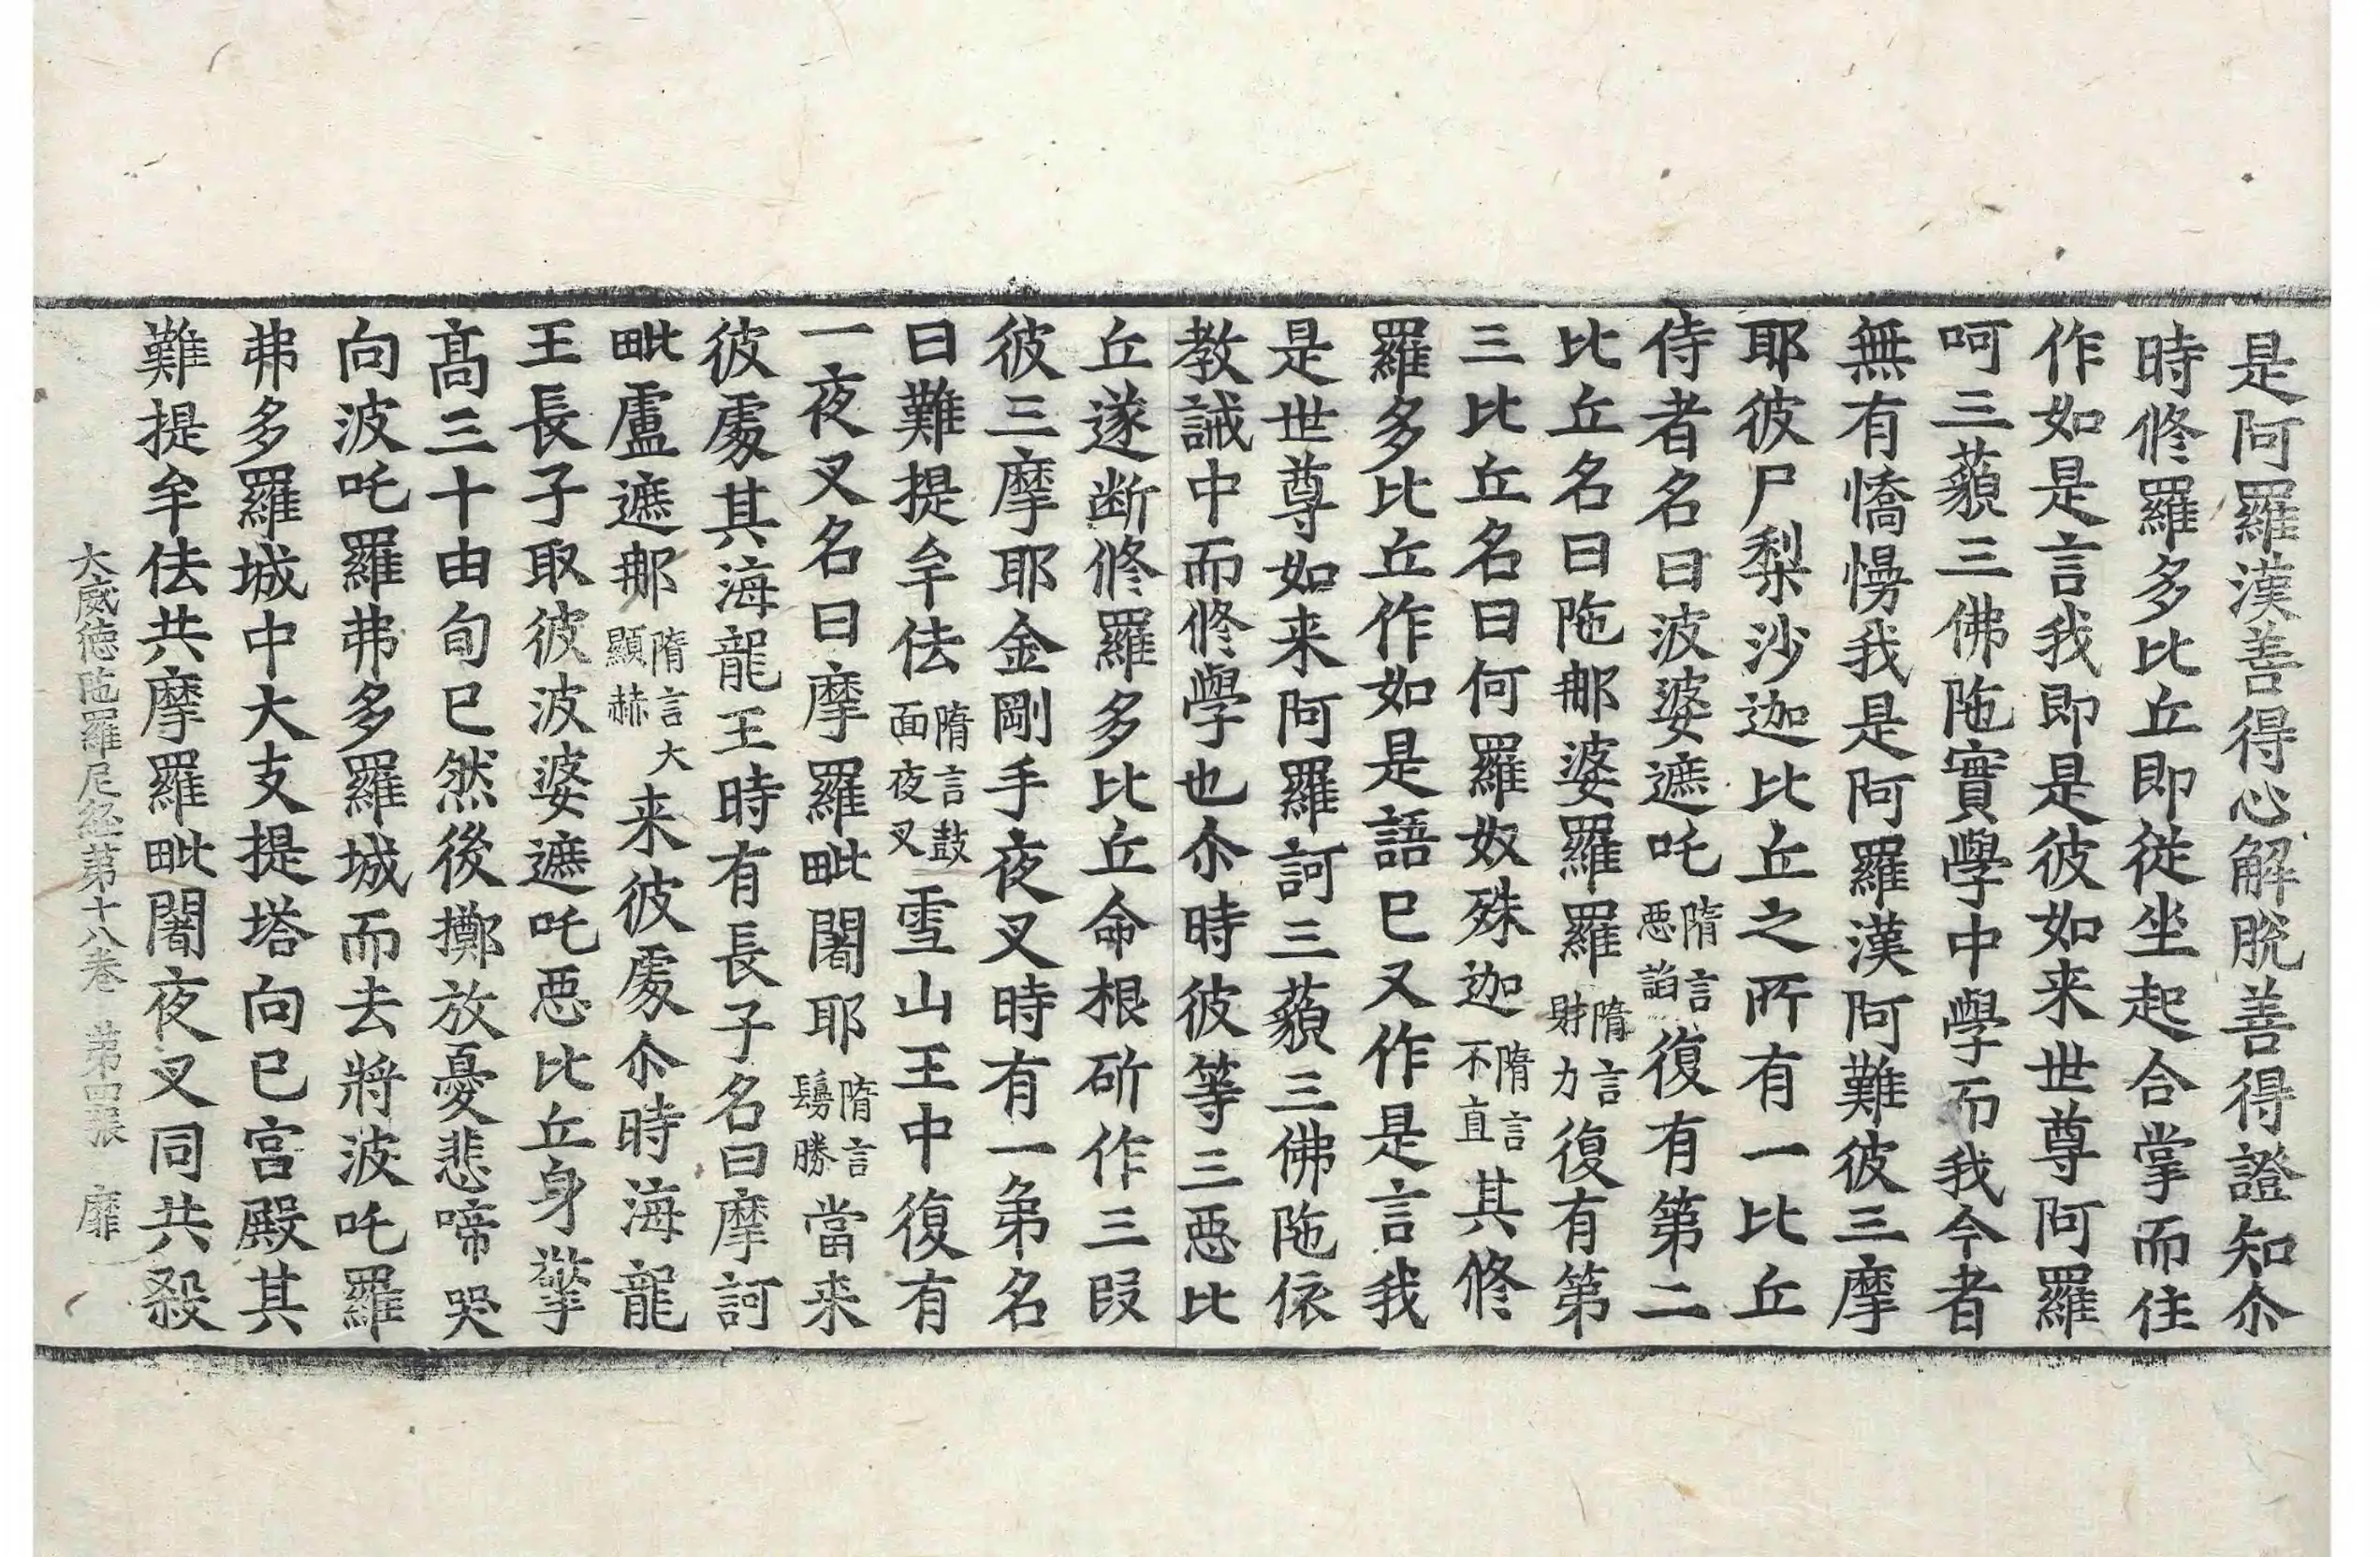 是阿羅漢善得心解脫善得證知尒
時修羅多比丘即從坐起合掌而住
作如是言我即是彼如来世尊阿羅
呵三藐三佛陁實學中學而我今者
無有憍慢我是阿羅漢阿難彼三摩
耶彼尸梨沙迦比丘之所有一比丘
侍者名曰波婆遮吒隋言惡諂復有第二
比丘名曰陁那婆羅羅隋言財力復有第
三比丘名曰何羅奴殊迦隋言不直其修
羅多比丘作如是語已又作是言我
是世尊如来阿羅訶三藐三佛陁依
教誡中而修學也尒時彼等三惡比
丘遂断修羅多比丘命根斫作三段
彼三摩耶金剛手夜叉時有一弟名
曰難提牟佉隋言鼓面夜叉雪山王中復有
一夜叉名曰摩羅毗闍耶隋言鬘勝當来
彼處其海龍王時有長子名曰摩訶
毗盧遮那隋言大顯赫来彼處尒時海龍
王長子取彼波婆遮吒惡比丘身擎
髙三十由旬已然後擲放憂悲啼哭
向波吒羅弗多羅城而去將波吒羅
弗多羅城中大支提塔向已宮殿其
難提牟佉共摩羅毗闍夜叉同共殺
大威德陁羅尼経第十八卷 第四張 靡